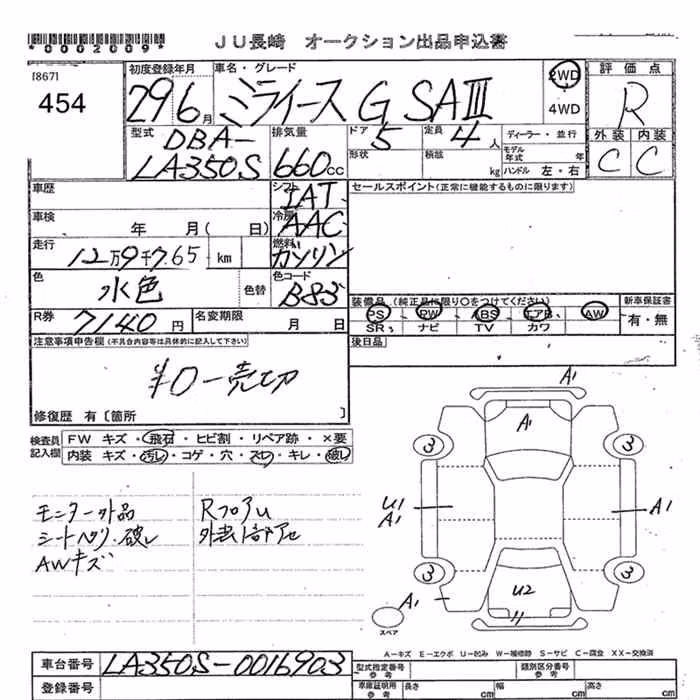 *0002009*
JU長崎 オークション出品申込書
[867]
454
初度登録年月
29 6月
車名・グレード
ミライース G SAⅢ
2WD
4WD
評価点
R
外装 内装
C C
型式
DBA-
LA350S
排気量
660cc
ドア
5
定員
4人
形状
積載
kg
ディーラー・並行
モデル年式 年
ハンドル 左・右
車歴
シフト
IAT
セールスポイント(正常に機能するものに限ります)
車検 年 月( 日)
冷房
AAC
走行
12万9千765 km
燃料
ガソリン
色
水色
色替
色コード
B83
R券
7140円
名変期限 月 日
装備品(純正品に限り○をつけてください)
PS・PW・ABS・エアB・AW
SR・ナビ TV カワ
新車保証書
有・無
後日品
注意事項申告欄(不具合内容等は具体的に記入して下さい)
¥0-売切
修復歴 有〔箇所 〕
検査員記入欄
FW キズ・飛石・ヒビ割・リペア跡・×要
内装 キズ・汚レ・コゲ・穴・スレ・キレ・破レ
モニター外品
シートヘタリ・破レ
AWキズ
RフロアU
A1
A1
3
3
U1
A1
A1
3
3
A1
U2
スペア
A-キズ E-エクボ U-凹み W-補修跡 S-サビ C-腐食 XX-交換済
車台番号
LA350S-0016903
登録番号
型式指定番号
参考
類別区分番号
参考
車庫証明用
参考
長さ cm
幅 cm
高さ cm